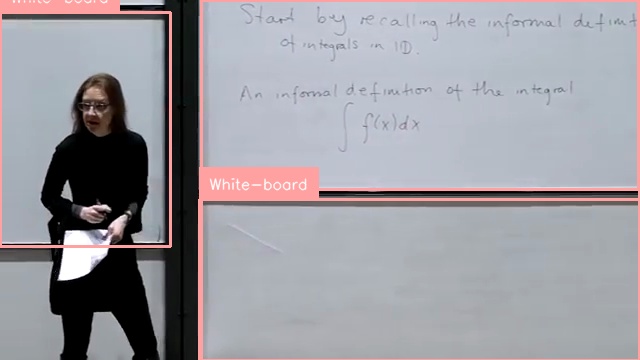 White-board
Start by recalling the informal definit
of integrals in 1D.
An informal definition of the integral
∫ f(x) dx
White-board